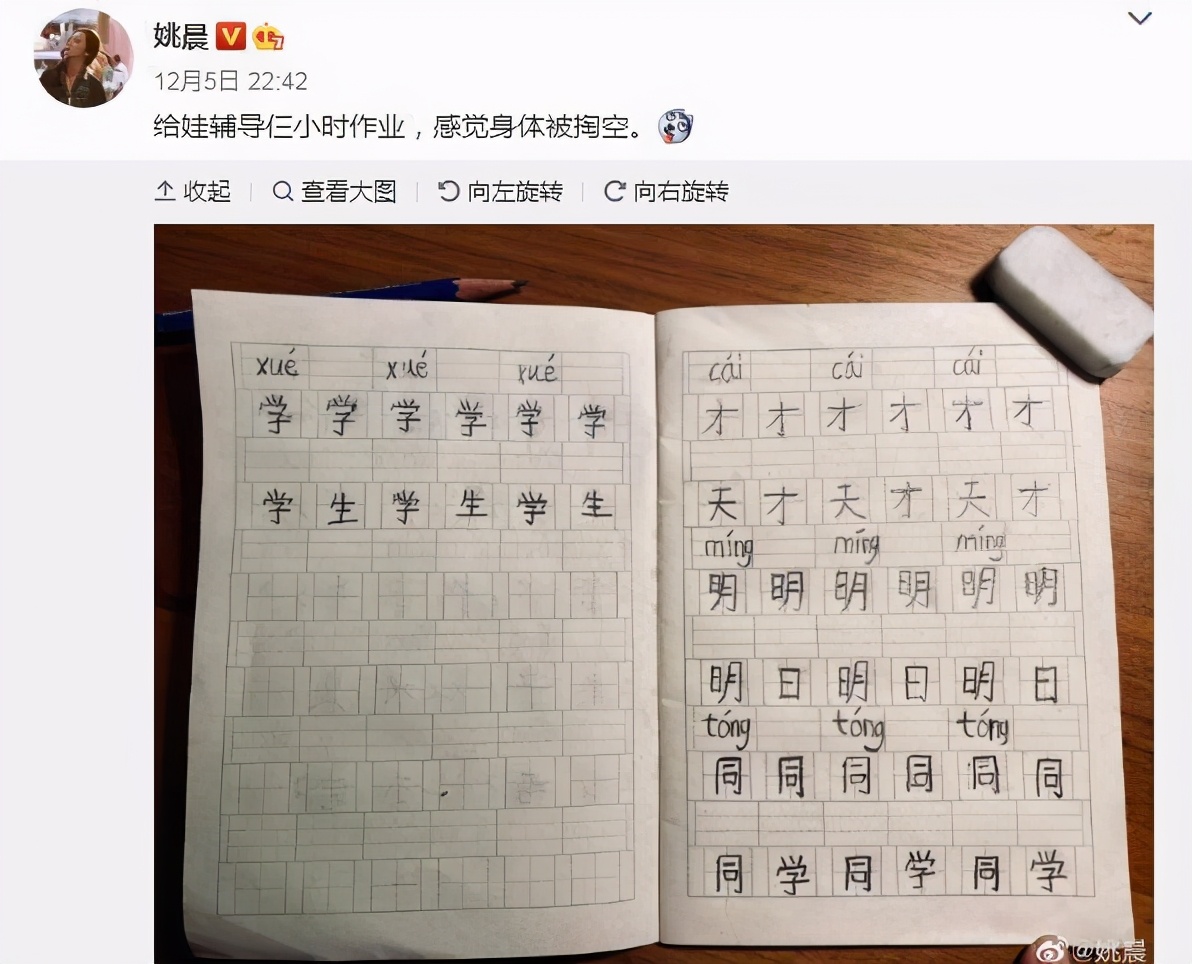 姚晨
12月5日 22:42
给娃辅导仨小时作业，感觉身体被掏空。
收起 查看大图 向左旋转 向右旋转
xué xué xué
学 学 学 学 学 学
学 生 学 生 学 生
cái cái cái
才 才 才 才 才 才
天 才 天 才 天 才
míng míng míng
明 明 明 明 明 明
明 日 明 日 明 日
tóng tóng tóng
同 同 同 同 同 同
同 学 同 学 同 学
@姚晨